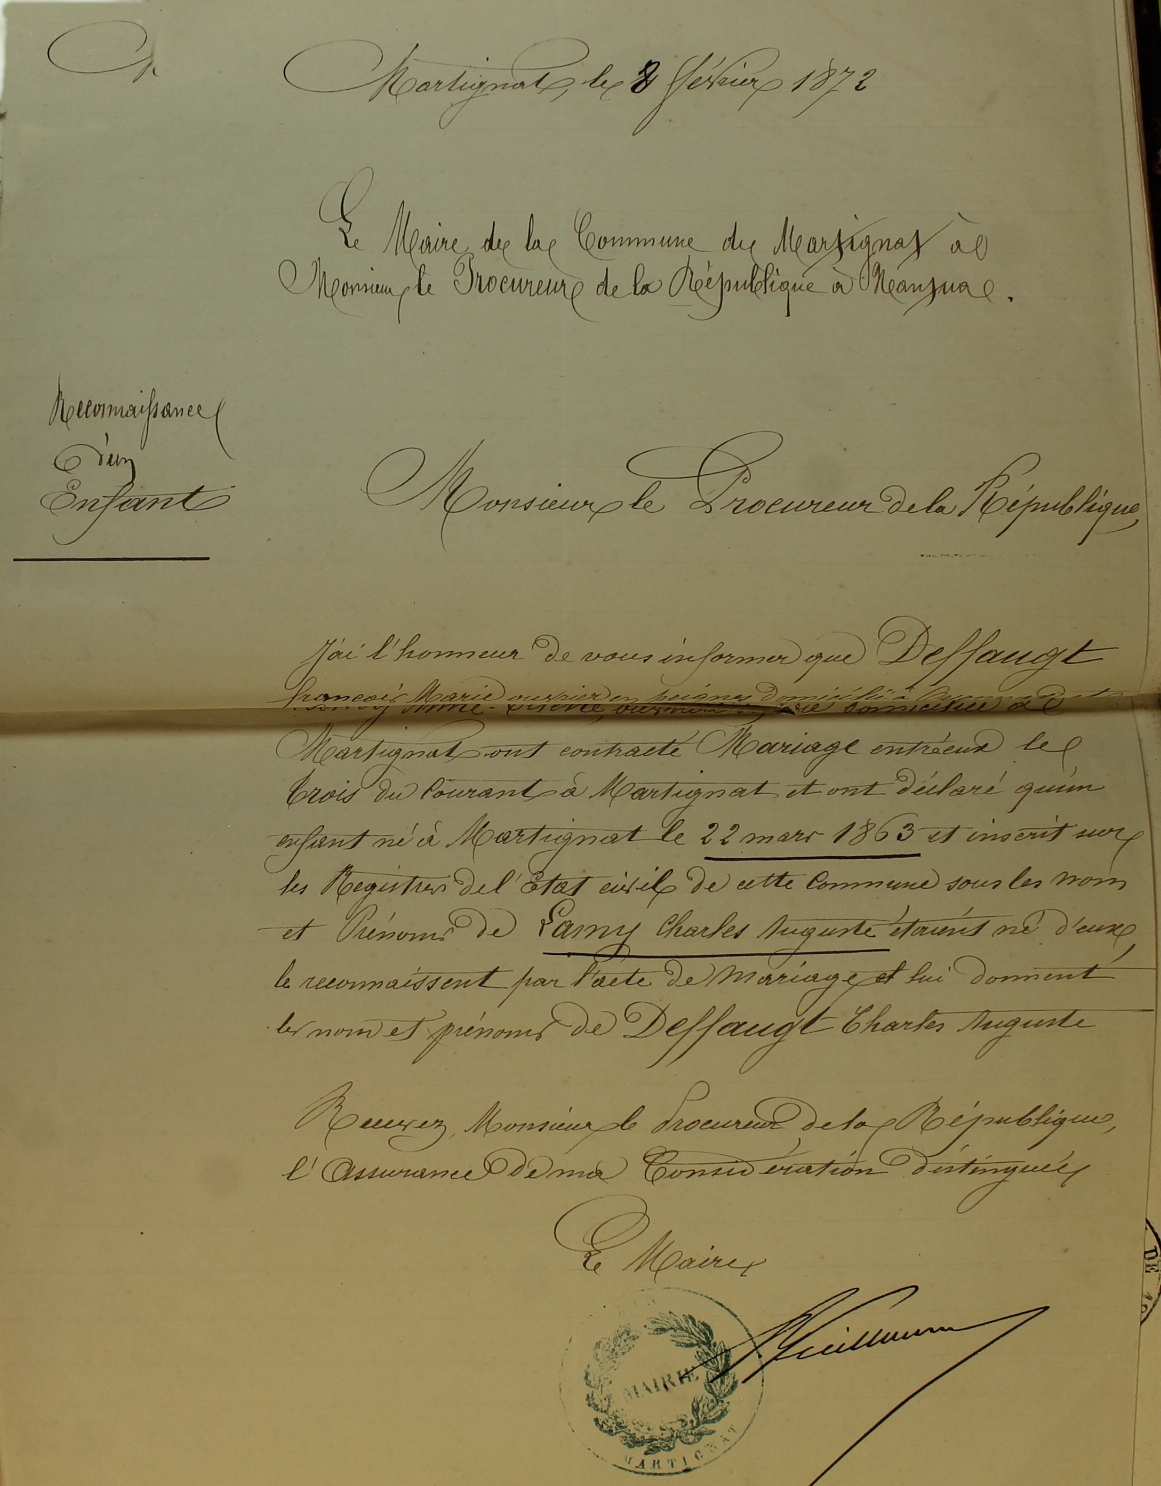 Martignat, le 8 février 1872
Le Maire de la Commune de Martignat à
Monsieur le Procureur de la République à Nantua.
Reconnaissance
d'un
Enfant
Monsieur le Procureur de la République,
J'ai l'honneur de vous informer que Deffaugt
françois Marie ouvrier en peignes domicilié à
domiciliée à
Martignat ont contracté Mariage entr'eux le
trois du Courant à Martignat et ont déclaré qu'un
enfant né à Martignat le 22 mars 1863 et inscrit sur
les Registres de l'Etat civil de cette Commune sous les nom
et Prénoms de Lamy Charles Auguste étaient né d'eux,
le reconnaissent par l'acte de Mariage et lui donnent
les nom et prénoms de Deffaugt Charles Auguste
Recevez, Monsieur le Procureur de la République,
l'Assurance de ma Considération distinguée
Le Maire
Guillaume
MAIRIE
MARTIGNAT
DE